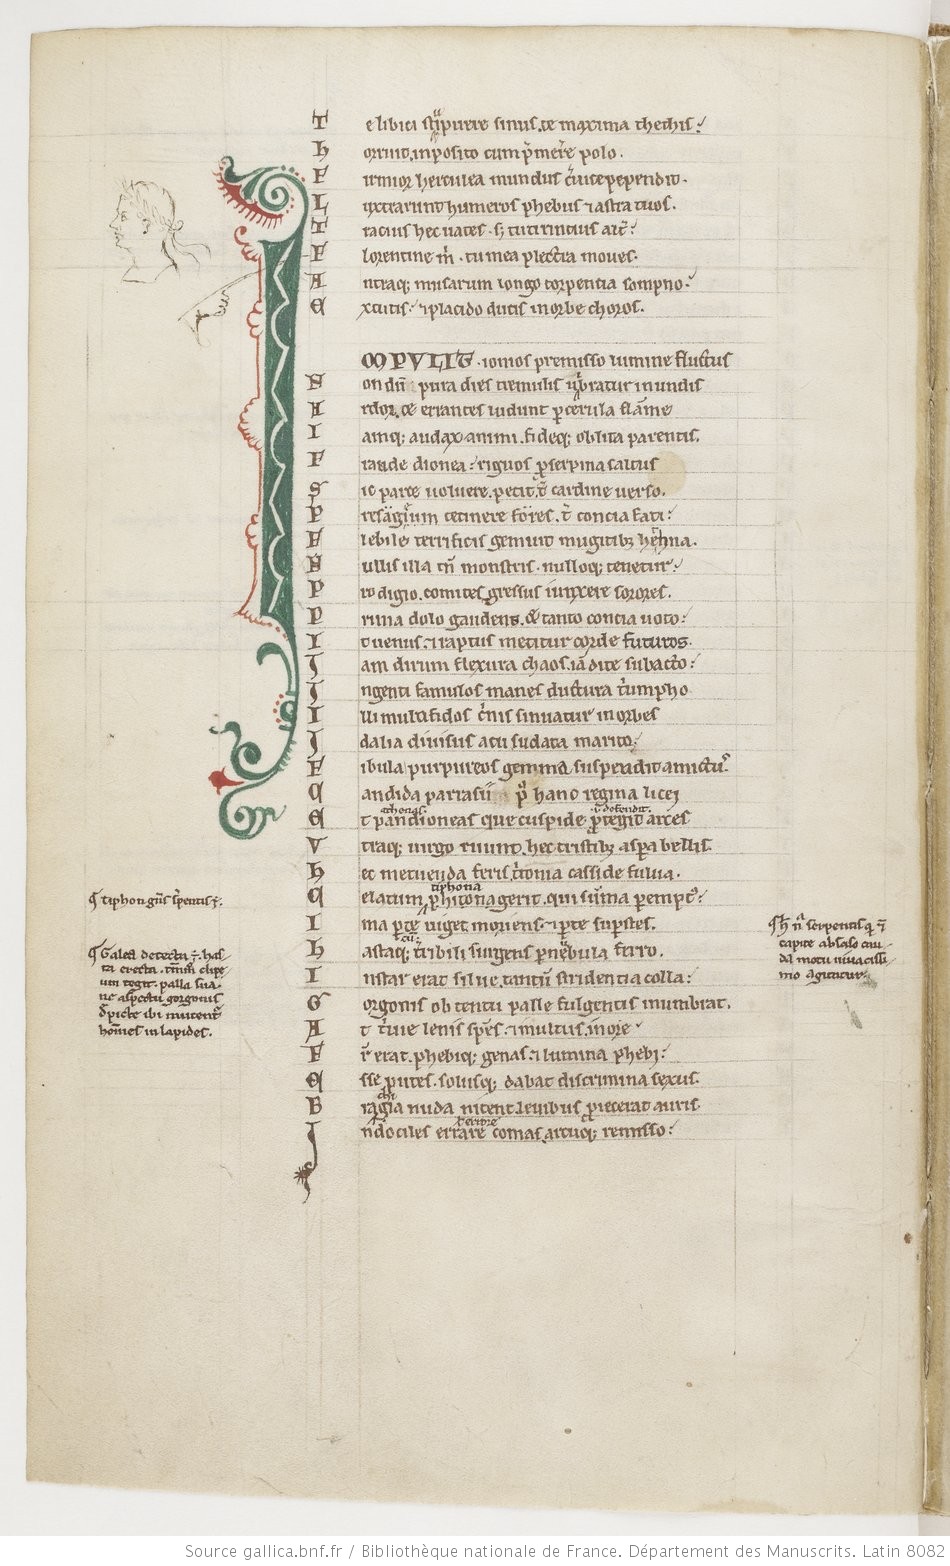 T e libici stupuere sinus. te maxima thethis:
H orruit. inposito cum p̄mere polo.
F irmior herculea mundus ceruice pependit.
L uxtrarunt humeros phebus ⁊ astra tuos.
T racius hec uates. s; tu tirintius alt̄:
F lorentine m̄. tu mea plectra moues.
A ntraq; musarum longo torpentia sompno:
E xcutis: ⁊ placido ducis in orbe choros.
MPVLIT. ionios premisso lumine fluctus
N ondū pura dies tremulis uibratur in undis
A rdor. ⁊ errantes ludunt p cerula flāme
I amq; audax animi. fideq; oblita parentis.
F raude dionea: riguos pserpina saltus
S ic parce uoluere. petit. t̄ cardine uerso.
P resagium cecinere fores. t̄ concia fati:
F lebile terrificis gemuit mugitib; hēthna.
N ullis illa tn̄ monstris. nulloq; tenetur:
P rodigio. comites gressus iunxere sorores.
P rima dolo gaudens. & tanto concia uoto:
I t uenus. ⁊ raptus metitur corde futuros.
J am dirum flexura chaos. iā dite subacto:
J ngenti famulos manes ductura t'umpho
I lli multifidos c'nis sinuatur in orbes
J dalia diuisus acu sudata marito
F ibula purpureos gemma suspendit amictus.
C andida parrasii p' hanc regina licei
athenas. ul' defendit.
E t pandioneas que cuspide ptegit arces
V traq; uirgo ruunt. hec tristib; aspa bellis.
H ec metuenda feris. t'tonia casside fulua.
tiphona
C elatum phitona gerit. qui suma pempt':
I ma pte uiget moriens. ⁊ pte supstes.
H astaq; t'ribili surgens p nebula ferro.
I nstar erat silue. tantū stridentia colla:
G orgonis obtentu palle fulgentis inumbrat.
A t t'uie lenis spēs. ⁊ multus in ore
F r̄ erat. phebiq; genas. ⁊ lumina phebi:
E sse putes. solusq; dabat discrimina sexus.
B rachia nuda nitent. leuibus piecerat auris.
J ndociles errare comas. arcuq; remisso:
¶ tiphon gn̄s serpentis ē.
¶ Galea detecta ē. has-
ta erecta. tm̄ clipe-
um tegit. palla sua.
ne aspectu gorgonis
depicte ibi mutent'
homīes in lapides.
¶ h' n̄ serpentis q ī
capite absciso cau-
da motu uiuacissi-
mo agitatur.
Source gallica.bnf.fr / Bibliothèque nationale de France. Département des Manuscrits. Latin 8082